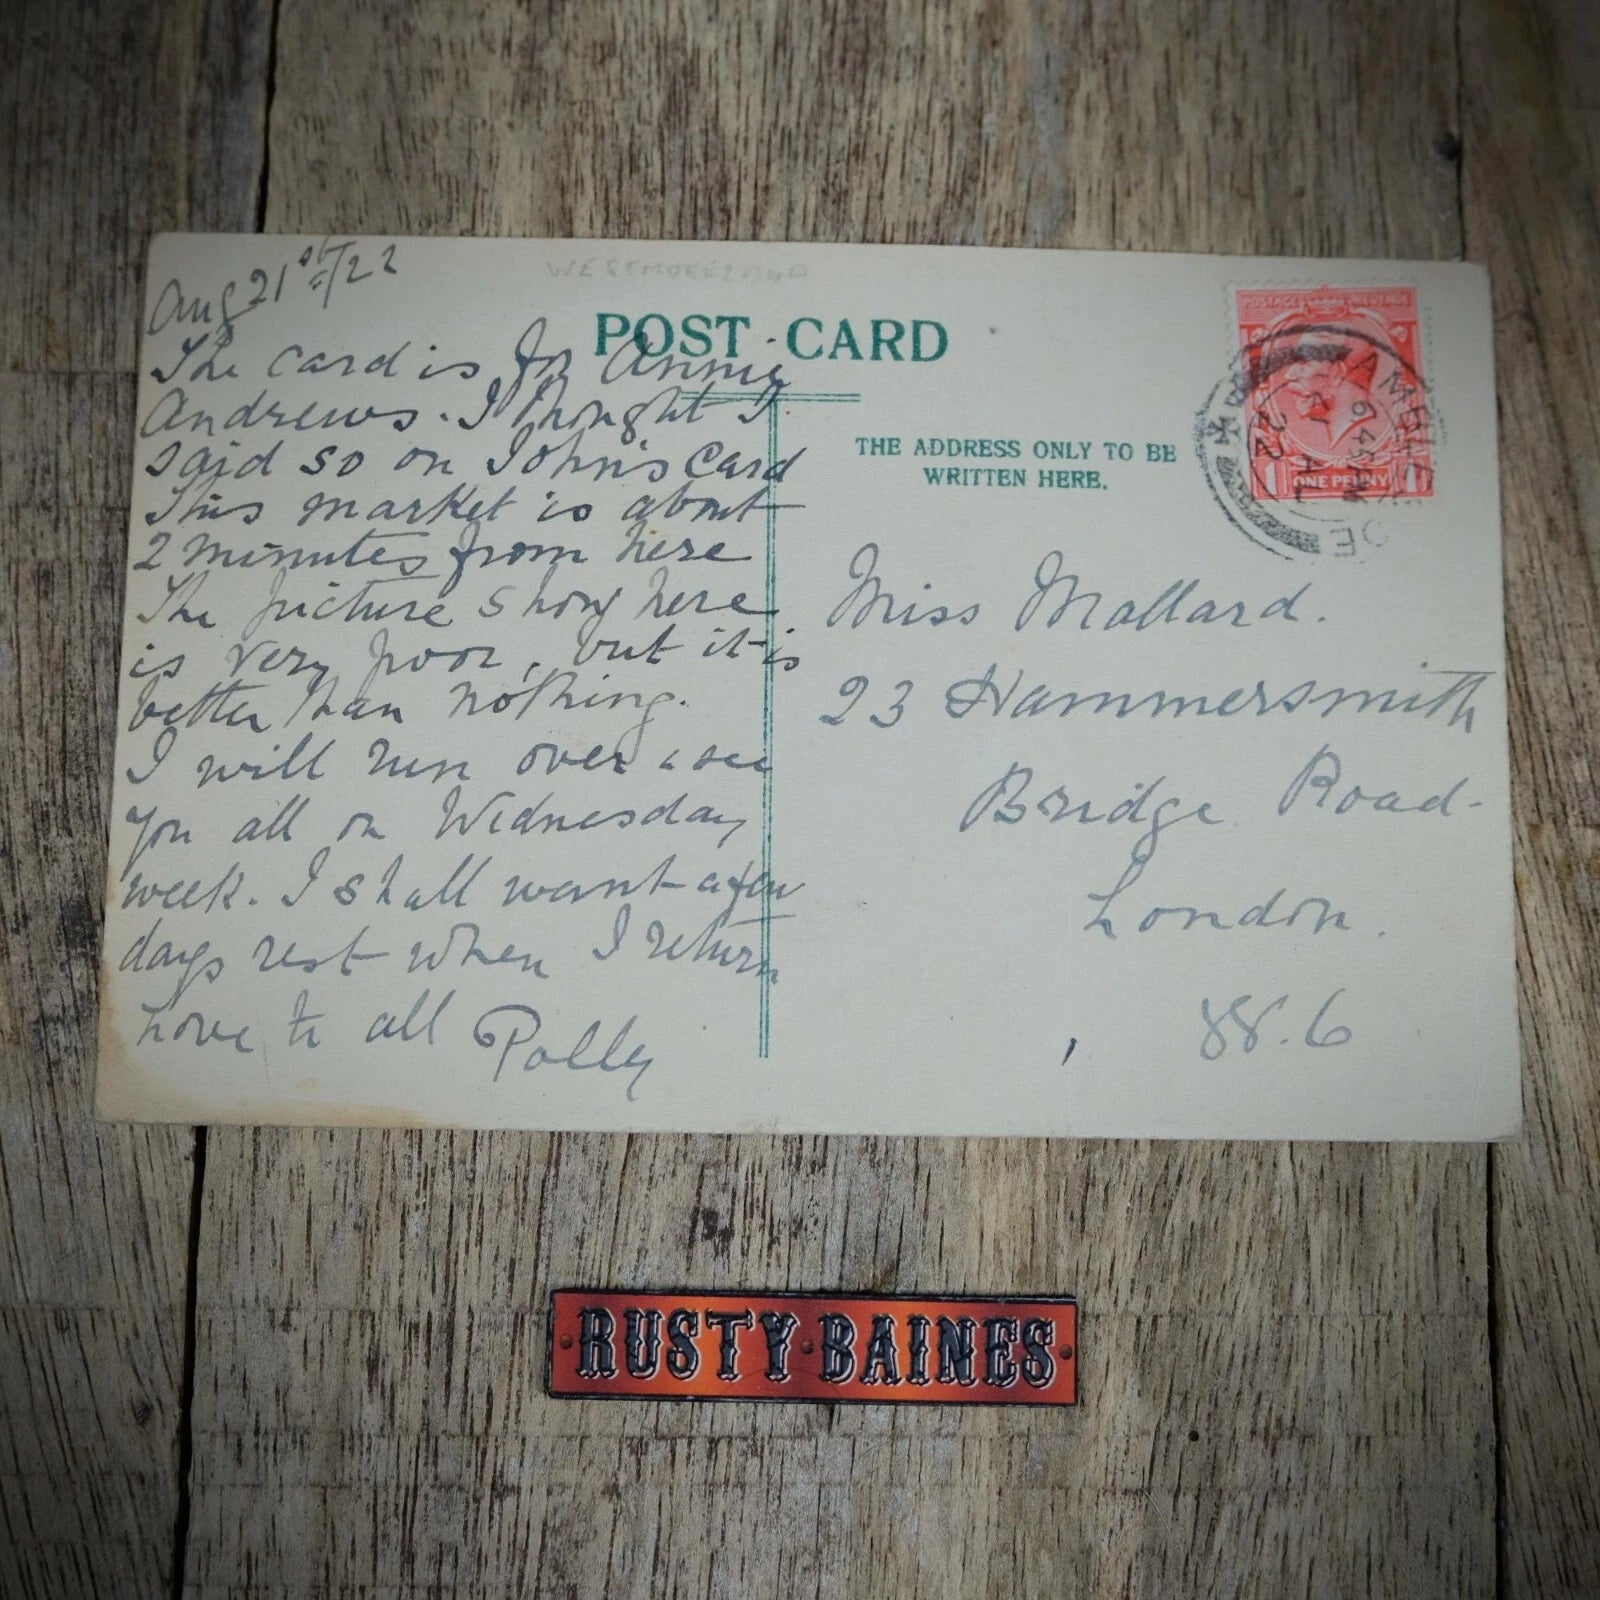 WESTMORELAND
Aug 21st/22
POST CARD
The card is for Annie
Andrews. I thought I
said so on John's card
This market is about
2 minutes from here
The picture shong here
is very poor, but it is
better than nothing.
I will run over & see
you all on Wednesday
week. I shall want a few
days rest when I return
Love to all Polly
THE ADDRESS ONLY TO BE
WRITTEN HERE.
POSTAGE REVENUE
1 ONE PENNY 1
AMBLE
6 45 PM
21 AU
22
Miss Mallard.
23 Hammersmith
Bridge Road.
London.
88.6
RUSTY BAINES